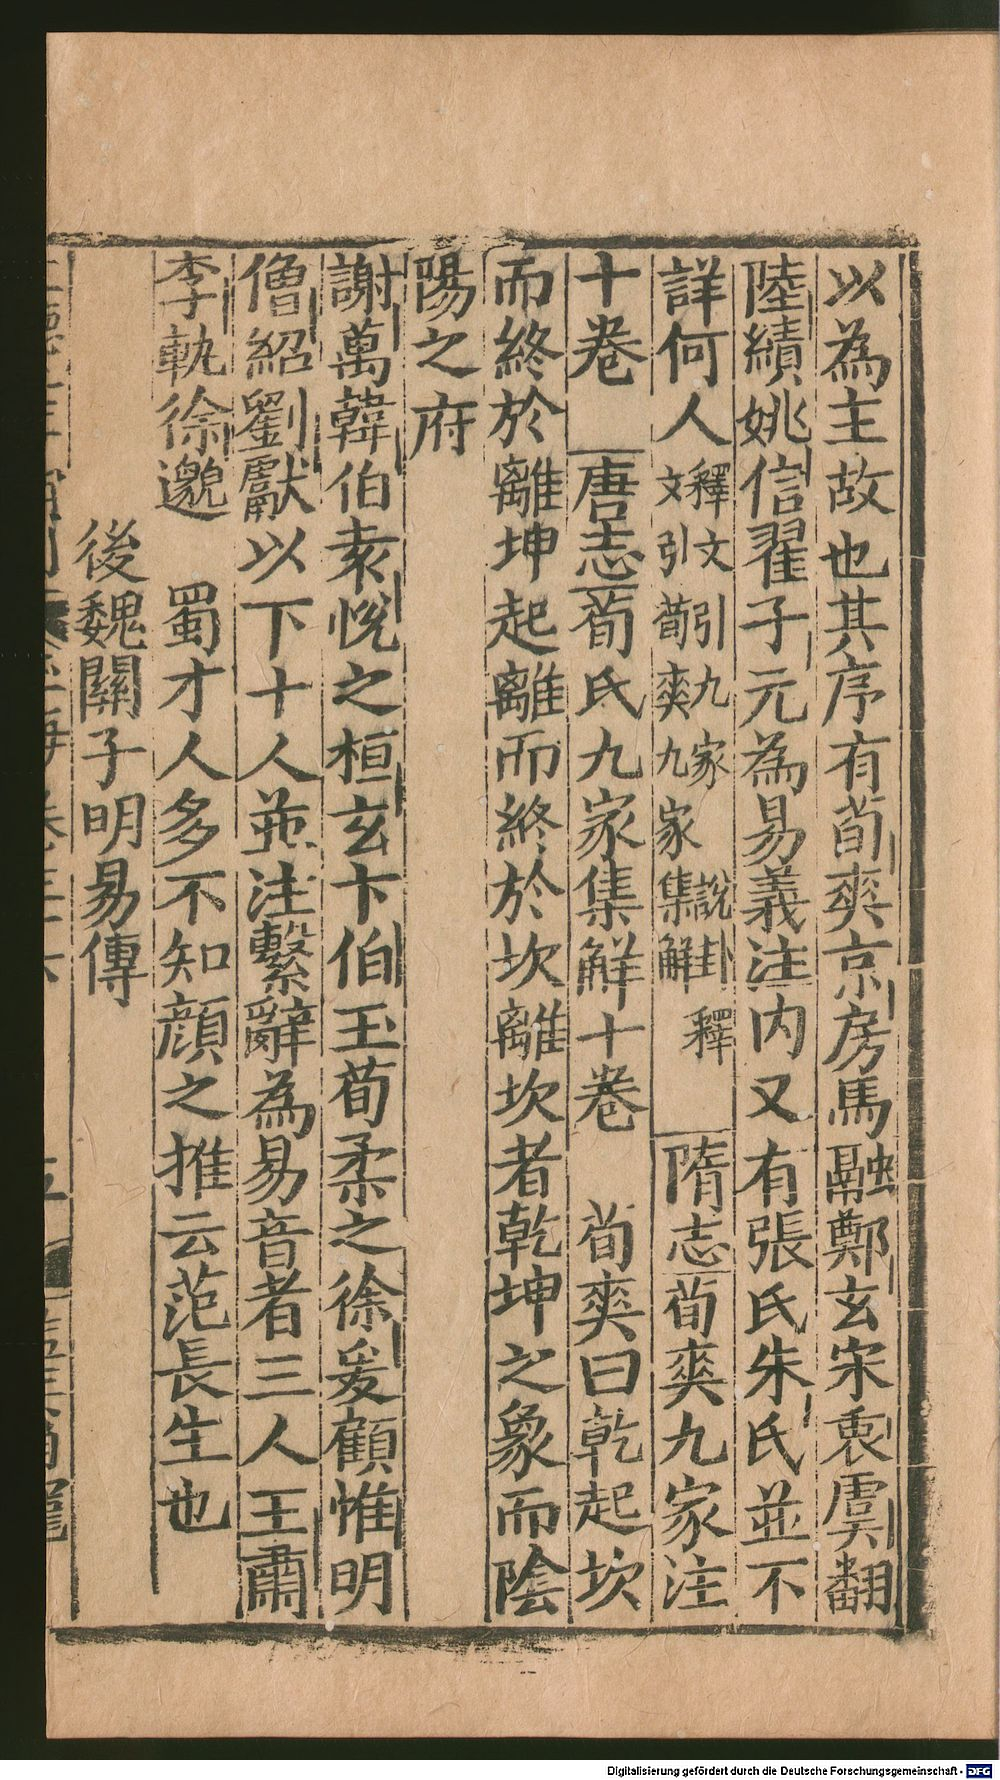 以為主故也其序有荀爽京房馬融鄭玄宋衷虞翻
陸績姚信翟子元為易義注内又有張氏朱氏並不
詳何人釋文引九家說卦釋文引荀爽九家集解 隋志荀爽九家注
十卷 唐志荀氏九家集解十卷 荀爽曰乾起坎
而終於離坤起離而終於坎離坎者乾坤之象而陰
陽之府
謝萬韓伯袁悅之桓玄卞伯玉荀柔之徐爰顧惟明
僧紹劉瓛以下十人並注繫辭為易音者三人王肅
李軌徐邈 蜀才人多不知顔之推云范長生也
後魏關子明易傳
Digitalisierung gefördert durch die Deutsche Forschungsgemeinschaft - DFG